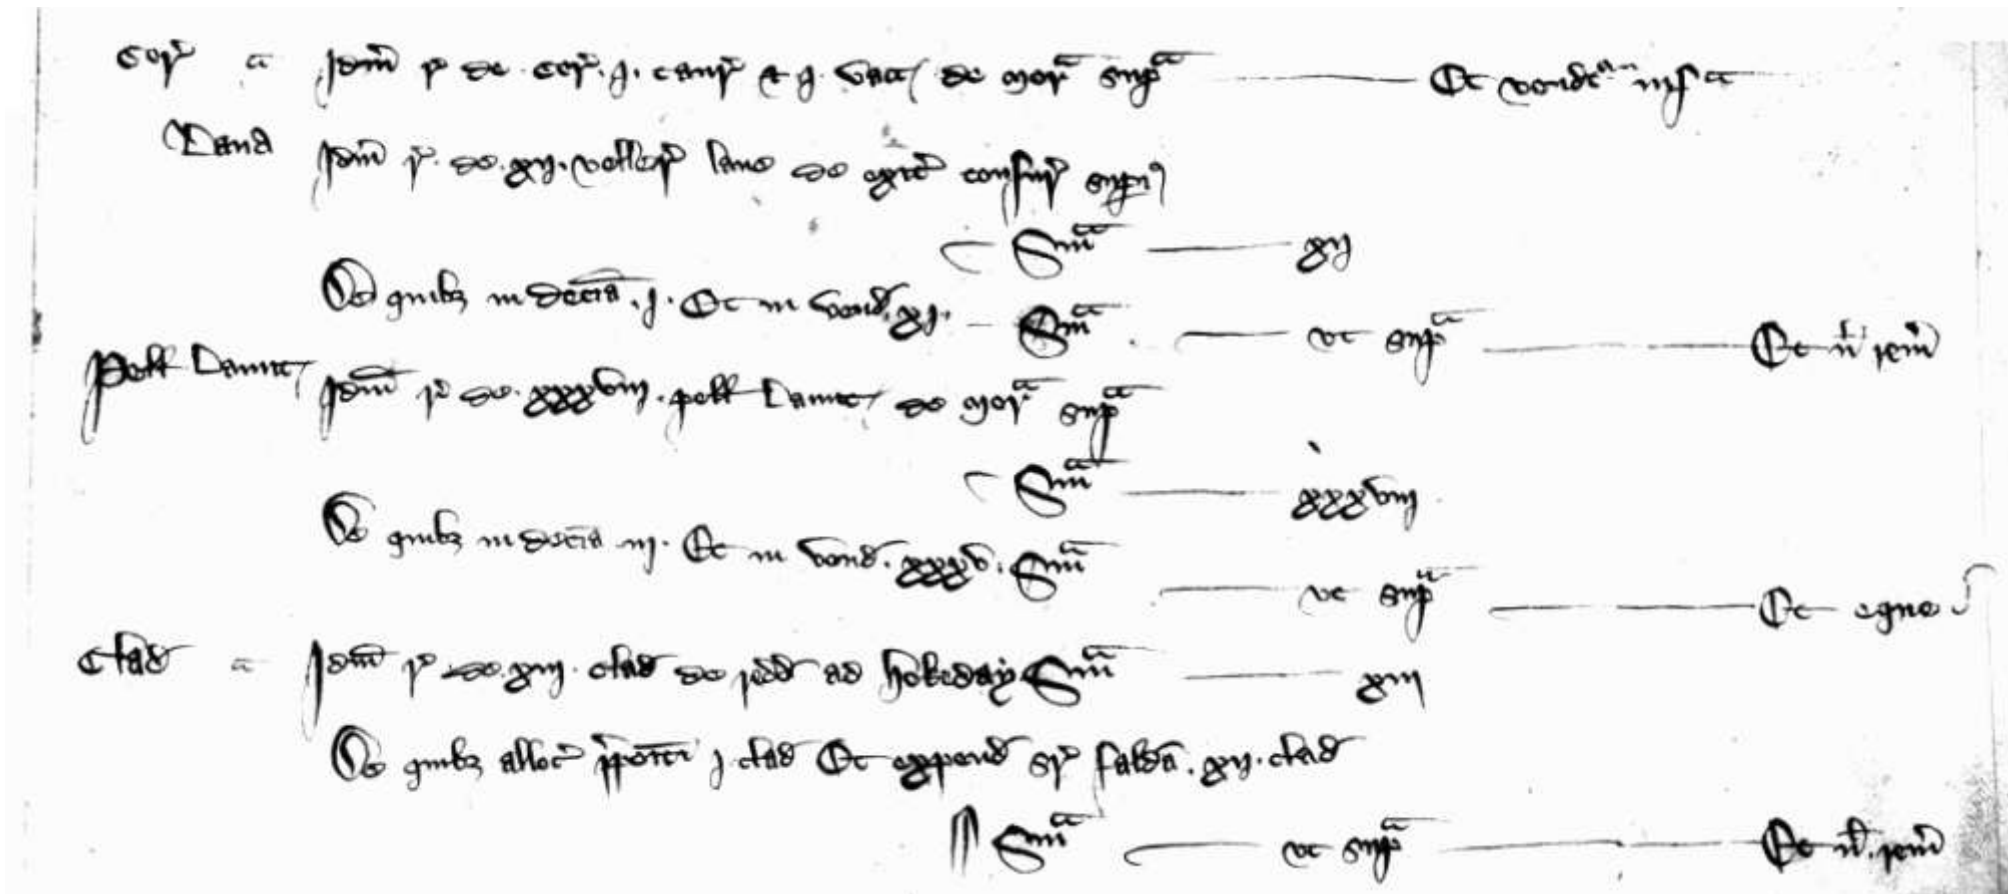 Cor' Idm̄ r' de cor' .j. taur' et .j. vacc' de mor' sup^a Et vendit^r inf^a
Lana Idm̄ r' de .xij. veller' lane de exit' tonsur' sup^i9
Sm^a xij
De quibȝ in decīa .j. Et in vend' .xj. Sm^a vt sup^a Et n^l rem'
Pell' Lanut' Idm̄ r' de .xxxviij. pell' Lanut' de mor' sup^a
Sm^a xxxviij
De quibȝ in decīa iij. Et in vend' .xxxv. Sm^a vt sup^a Et eque
Clad' Idm̄ r' de .xiij. clad' de redd' ad hokeday Sm^a xiij
De quibȝ alloc' p̄pōīto j clad' Et expend' sup' faldā .xij. clad'
Sm^a vt sup^a Et n^l rem'